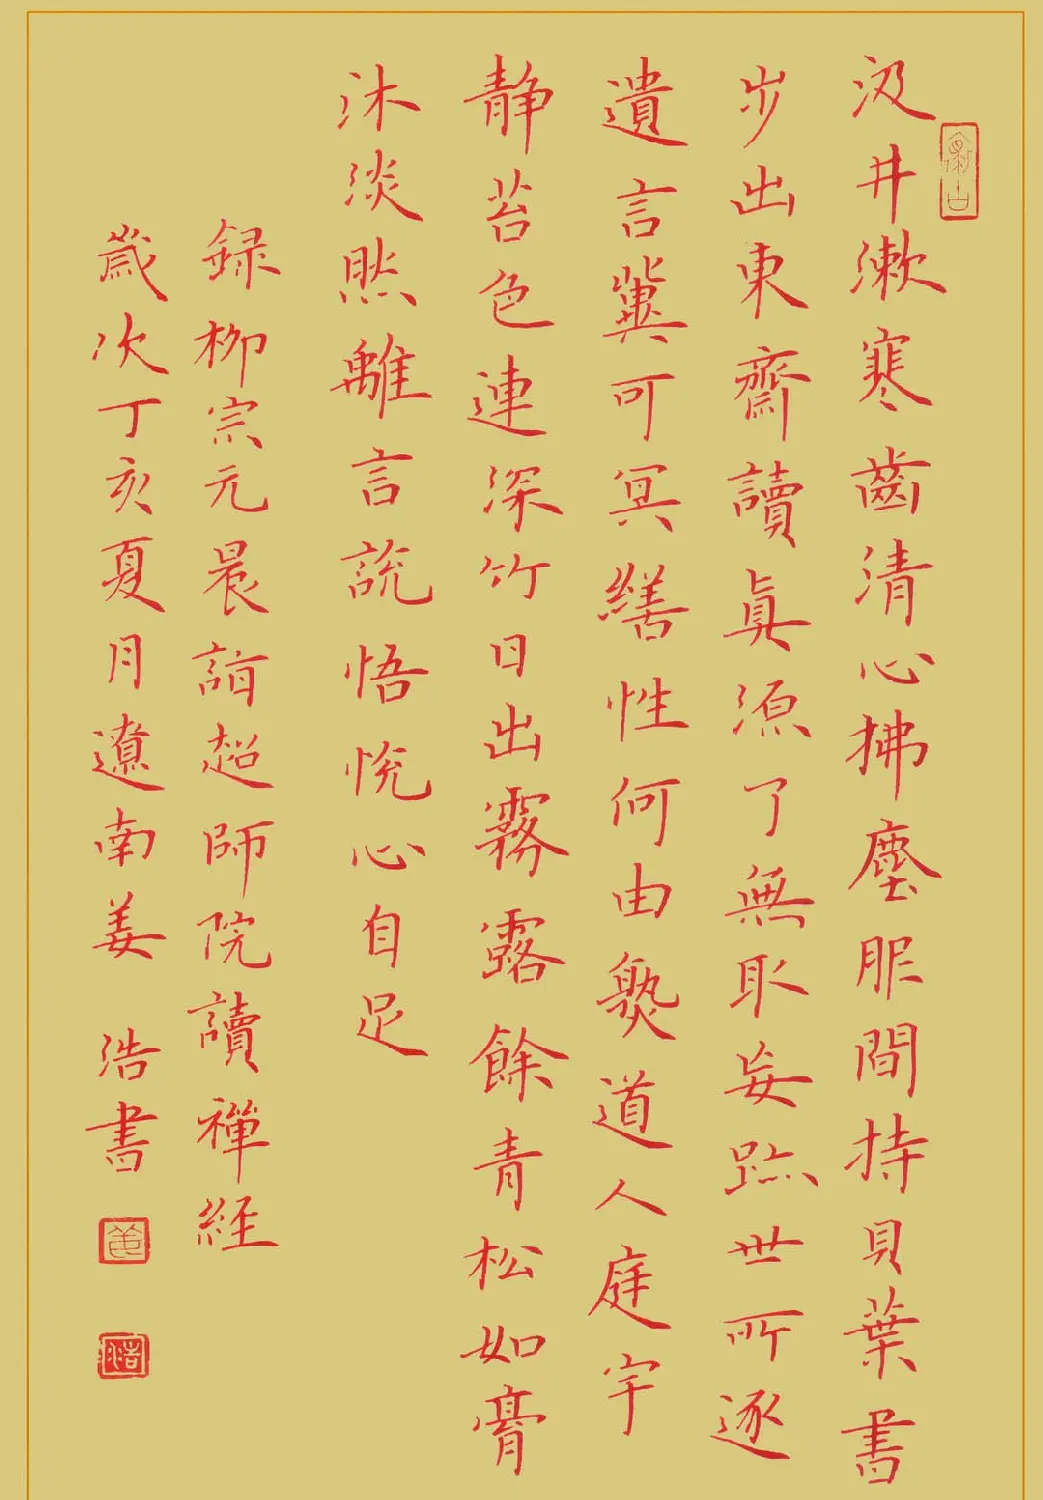 汲井漱寒齒清心拂塵服間持貝葉書
步出東齋讀真源了無取妄跡世所逐
遺言冀可冥繕性何由熟道人庭宇
静苔色連深竹日出霧露餘青松如膏
沐淡然離言說悟悅心自足
録柳宗元晨詣超師院讀禪經
歲次丁亥夏月遼南姜浩書